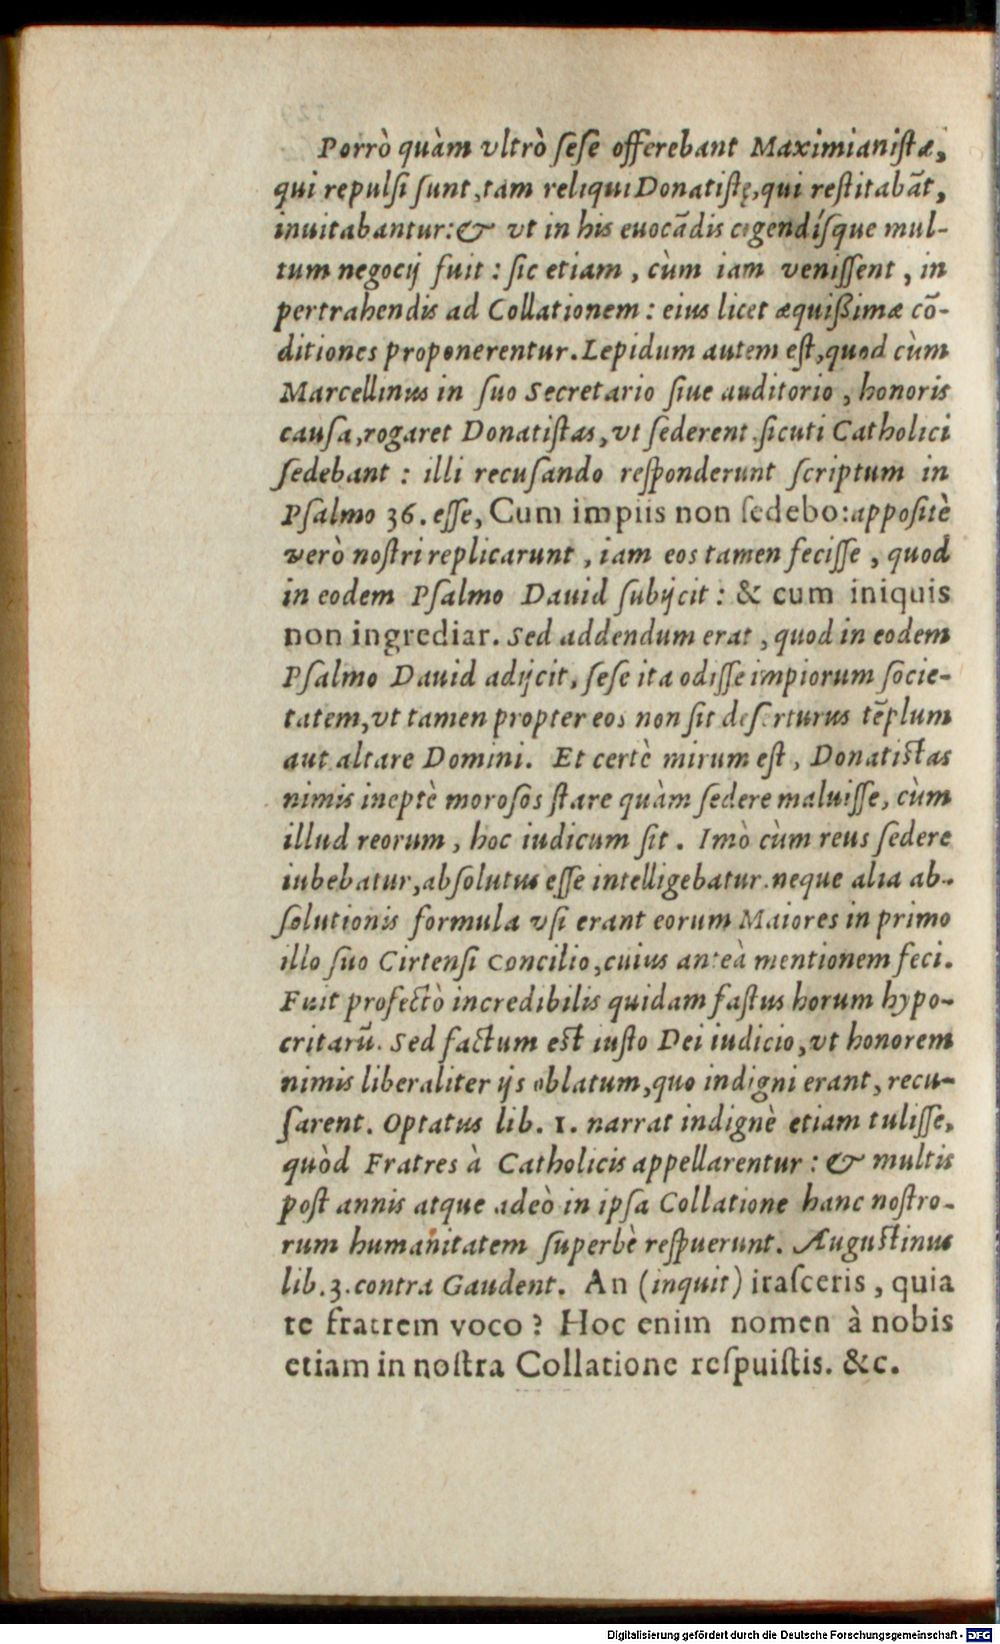 Porrò quàm vltrò ſeſe offerebant Maximianiſtæ,
qui repulſi ſunt, tam reliqui Donatiſtę, qui reſtitabāt,
inuitabantur: & vt in his euocādis cogendíſque mul-
tum negocij fuit : ſic etiam, cùm iam veniſſent, in
pertrahendis ad Collationem : eius licet æquißimæ cō-
ditiones proponerentur. Lepidum autem eſt, quod cùm
Marcellinus in ſuo Secretario ſiue auditorio, honoris
cauſa, rogaret Donatiſtas, vt ſederent ſicuti Catholici
ſedebant : illi recuſando reſponderunt ſcriptum in
Pſalmo 36. eſſe, Cum impiis non ſedebo: appoſitè
verò noſtri replicarunt, iam eos tamen feciſſe, quod
in eodem Pſalmo Dauid ſubijcit : & cum iniquis
non ingrediar. Sed addendum erat, quod in eodem
Pſalmo Dauid adijcit, ſeſe ita odiſſe impiorum ſocie-
tatem, vt tamen propter eos non ſit deſerturus tēplum
aut altare Domini. Et certè mirum eſt, Donatiſtas
nimis ineptè moroſos ſtare quàm ſedere maluiſſe, cùm
illud reorum, hoc iudicum ſit. Imò cùm reus ſedere
iubebatur, abſolutus eſſe intelligebatur. neque alia ab-
ſolutionis formula vſi erant eorum Maiores in primo
illo ſuo Cirtenſi Concilio, cuius anteà mentionem feci.
Fuit profectò incredibilis quidam faſtus horum hypo-
critarū. Sed factum eſt iuſto Dei iudicio, vt honorem
nimis liberaliter ijs oblatum, quo indigni erant, recu-
ſarent. Optatus lib. 1. narrat indignè etiam tuliſſe,
quòd Fratres à Catholicis appellarentur : & multis
poſt annis atque adeò in ipſa Collatione hanc noſtro-
rum humanitatem ſuperbè reſpuerunt. Auguſtinus
lib. 3. contra Gaudent. An (inquit) iraſceris, quia
te fratrem voco? Hoc enim nomen à nobis
etiam in noſtra Collatione reſpuiſtis. &c.
Digitalisierung gefördert durch die Deutsche Forschungsgemeinschaft - DFG